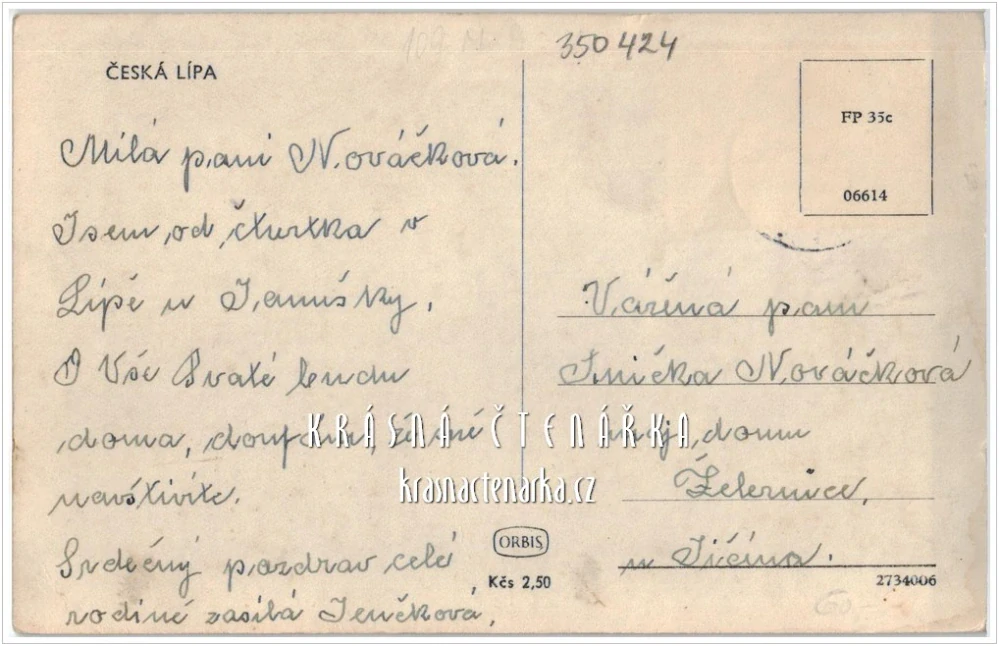 350424
ČESKÁ LÍPA
FP 35c
06614
Milá paní Nováčková.
Jsem od čtvrtka v
Lípě u Janušky.
O Vše Svaté budu
doma, doufám, že mě
navštívíte.
Srdečný pozdrav celé
rodině zasílá Jenčková,
Vážená paní
Anička Nováčková
domu
Železnice,
u Jičína.
KRÁSNÁ ČTENÁŘKA
krasnactenarka.cz
ORBIS
Kčs 2,50
2734006